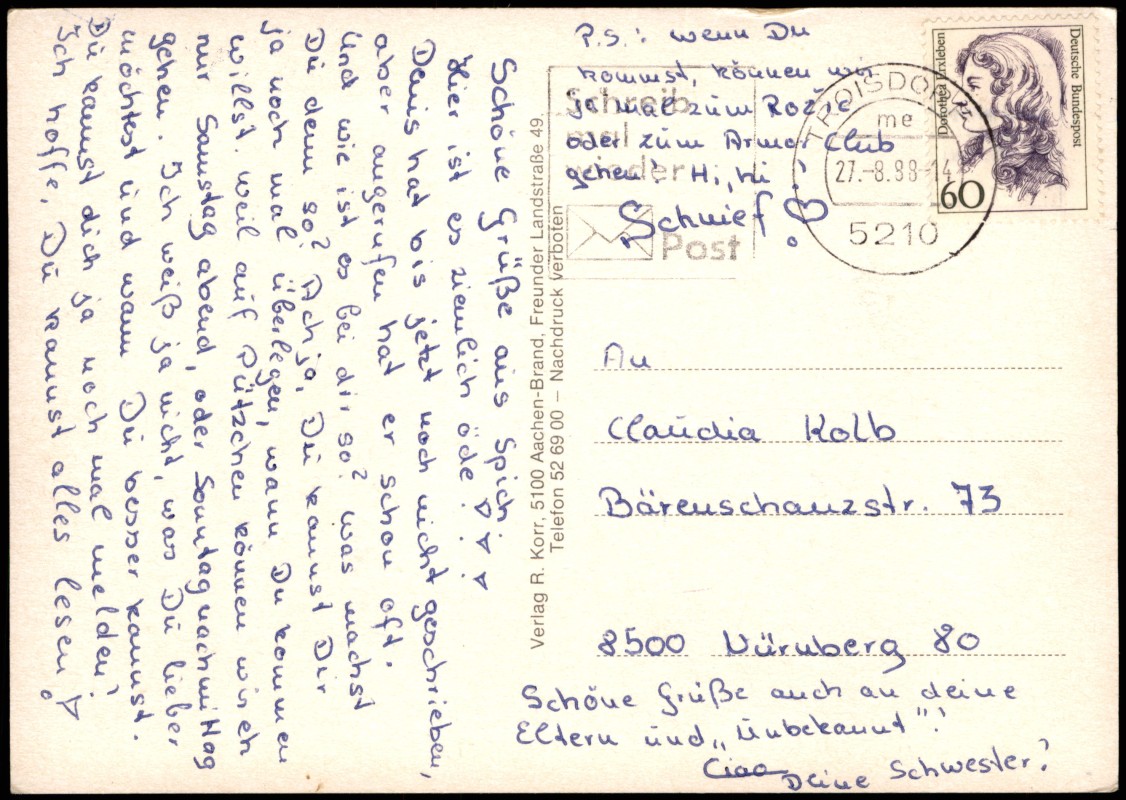 Schöne Grüße aus Spich
Hier ist es ziemlich öde!!!
Denis hat bis jetzt noch nicht geschrieben,
aber angerufen hat er schon oft.
Und wie ist es bei dir so? was machst
Du denn so? Ach ja, Du kannst Dir
ja noch mal überlegen, wann Du kommen
willst. weil auf Pützchen können wir eh
nur Samstag abend, oder Sonntagnachmittag
gehen. Ich weiß ja nicht, was Du lieber
möchtest und wann Du besser kannst.
Du kannst dich ja noch mal melden!
Ich hoffe, Du kannst alles lesen!
Verlag R. Korr, 5100 Aachen-Brand, Freunder Landstraße 49.
Telefon 52 69 00 – Nachdruck verboten
P.S.: wenn Du
kommst, können wir
ja mal zum
oder zum Armer Club
gehen! Hi, hi!
Schnief!
Schreib
mal
wieder
Post
TROISDORF
me
27.-8.88-14
5210
Deutsche Bundespost
Dorothea Erxleben
60
An
Claudia Kolb
Bärenschanzstr. 73
8500 Nürnberg 80
Schöne Grüße auch an deine
Eltern und „Unbekannt"!
Ciao
Deine Schwester?